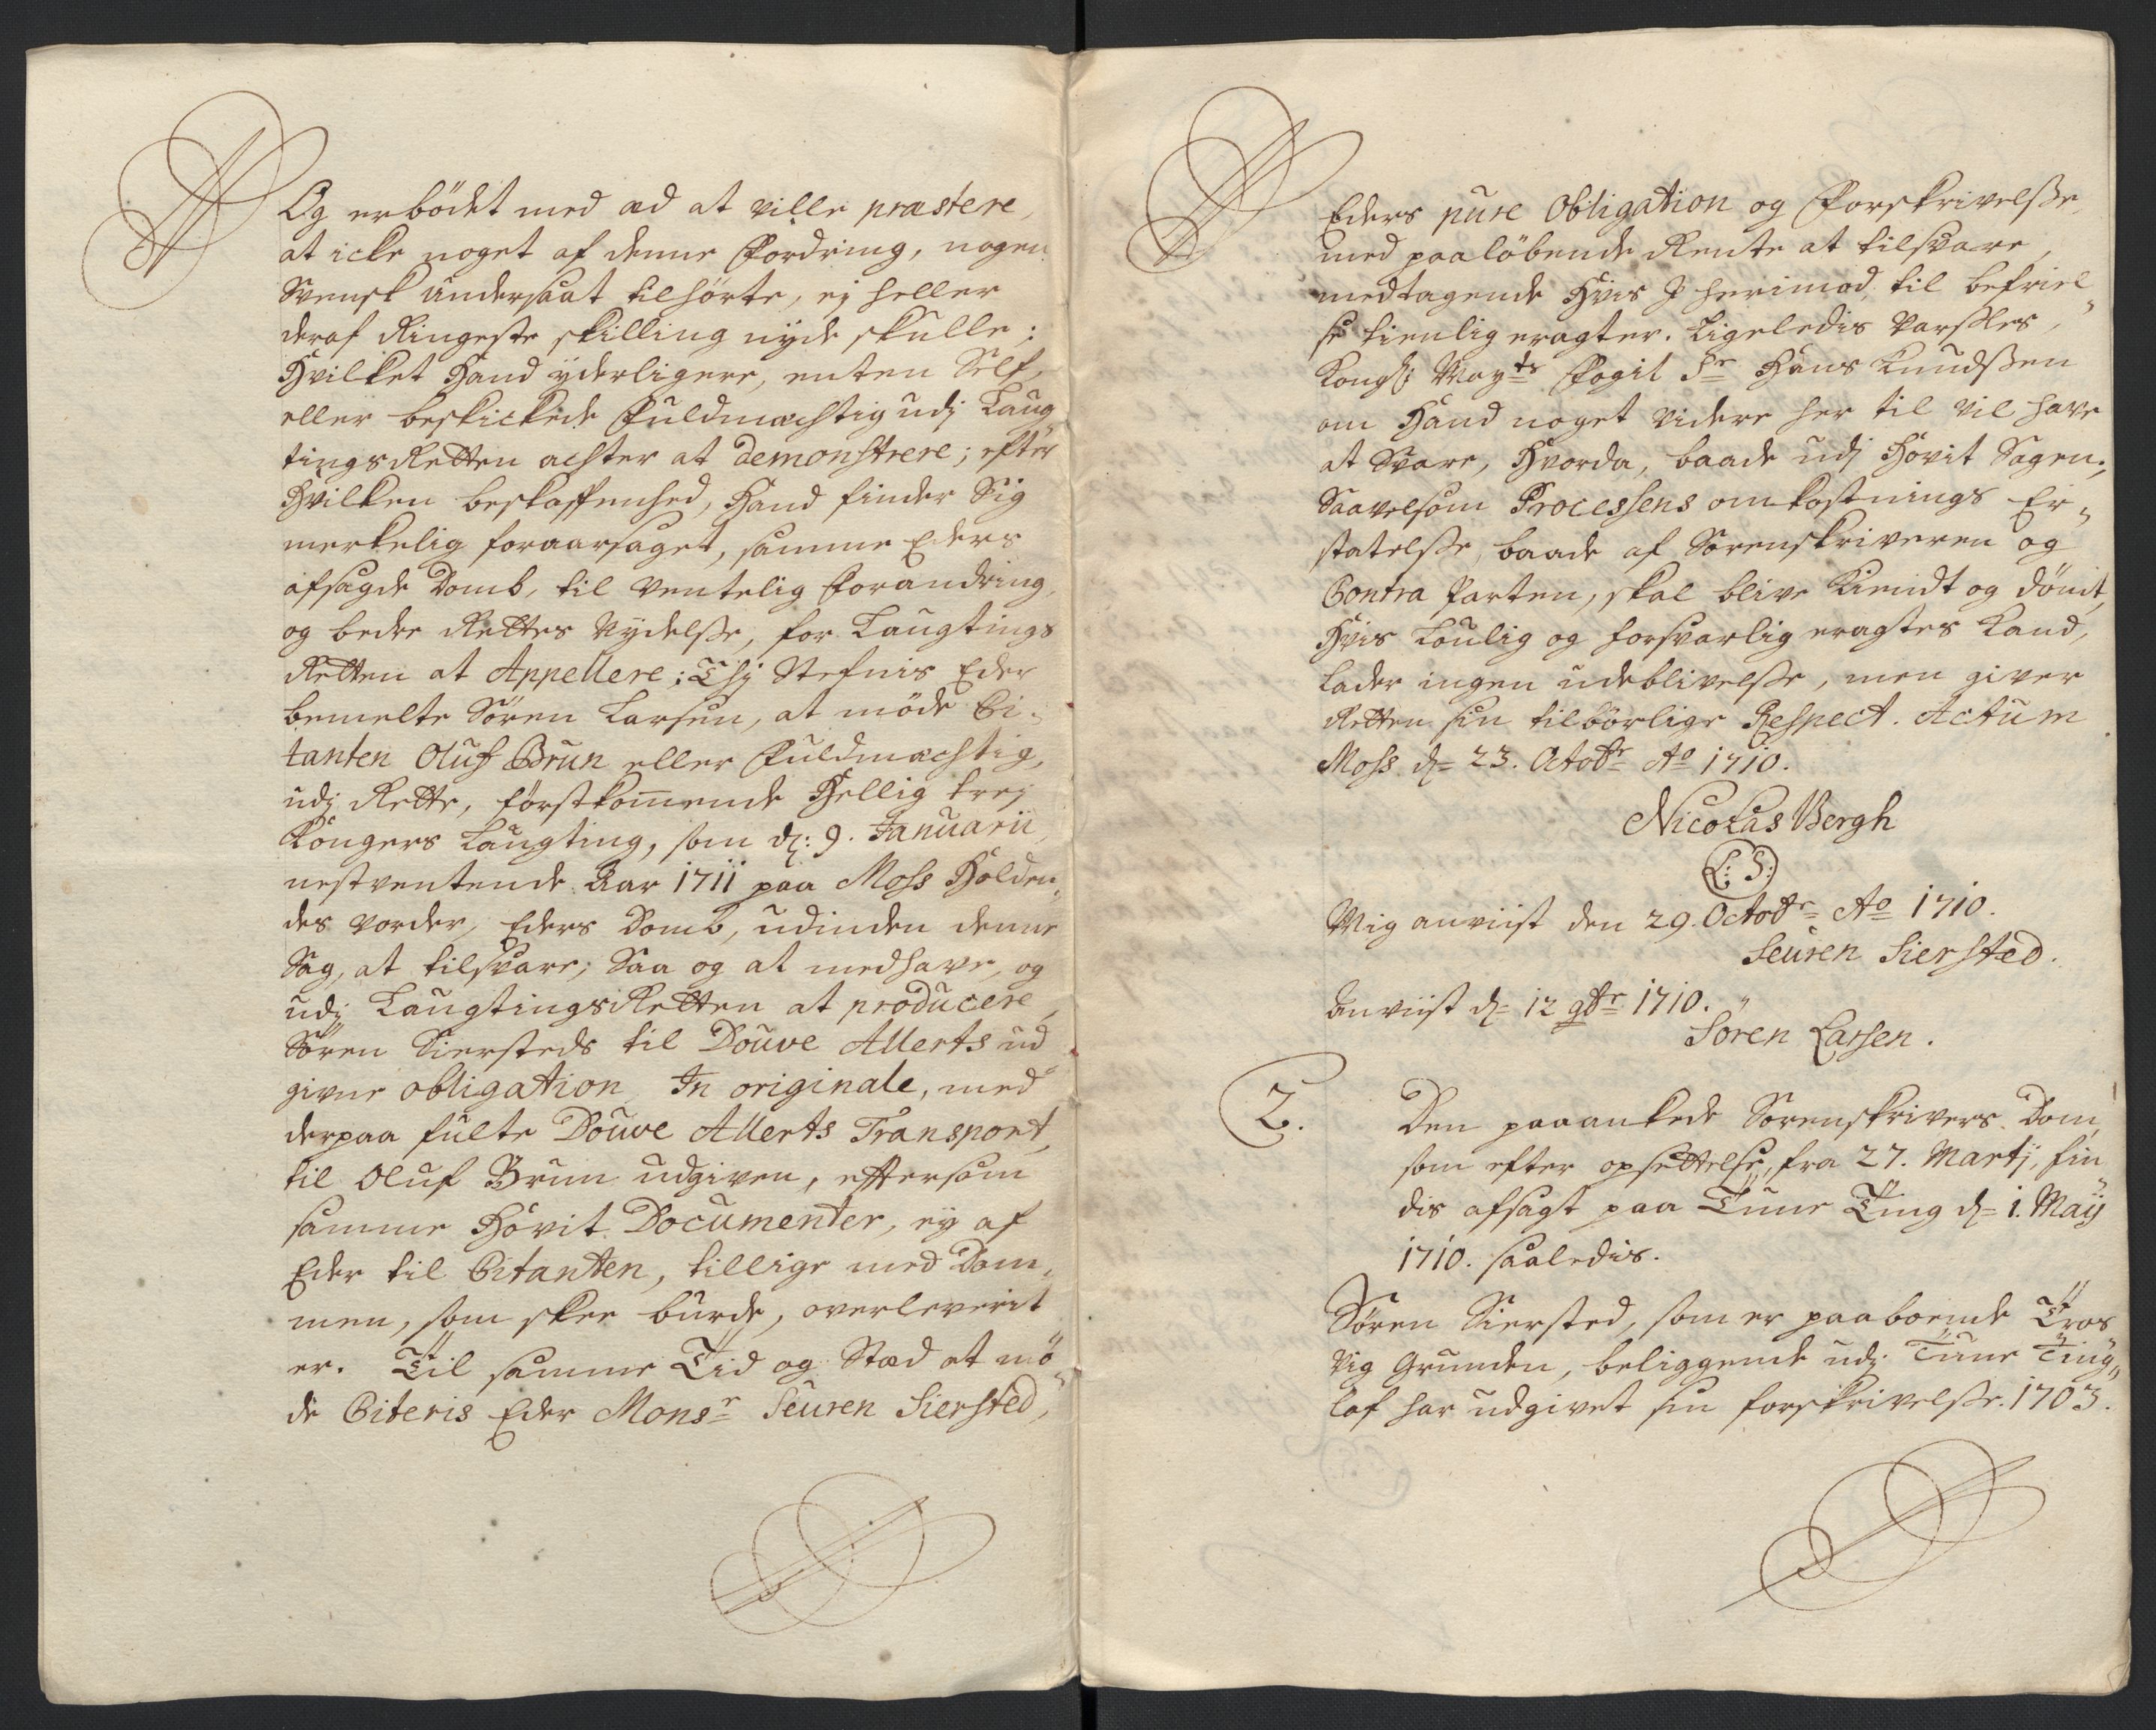 Og erbödet med æd at ville præstere,
at icke noget af denne Fordring, nogen
Svensk Undersaat tilhörte, ej heller
deraf Ringeste skilling nyde skulle;
Hvilket Hand yderligere, enten Self,
eller beskickede Fuldmachtig udj Laug„
tingsRetten achter at demonstrere; efter
Hvilken beskaffenhed, Hand finder Sig
merkelig foraarsaget, samme Eders
afsagde Domb, til ventelig Forandring,
og bedre Rettes Nydelsse, for Laugtings
Retten at Appellere; Thj Stefnis Eder
bemelte Sören Larsen, at möde Ci„
tanten Oluf Brun eller Fuldmachtig,
udj Rette, förstkommende Hellig trej
Kongers Laugting, som d: 9. Januarii,
nestventende Aar 1711 paa Moss Holden„
des vorder, Eders Domb, udinden denne
Sag, at tilsvare; Saa og at medhave, og
udj LaugtingsRetten at producere,
Sören Siersteds til Douwe Allerts ud„
givne obligation In originale, med
derpaa fulte Douwe Allerts Transport,
til Oluf Brun udgiven, eftersom
samme Hovit Documenter, ey af
Eder til Citanten, tillige med Dom„
men, som skee burde, overleverit
er. Til samme Tid og Stæd at mö„
de Citeris Eder Monsr Seuren Siersted,
Eders pure Obligation og Forskrivelsse,
med paalöbende Rente at tilsvare,
medtagende Hvis I herimod til befriel„
se tienlig eragter. Ligeledis Varsles,
Kongl: Mayts Fogit Sr Hans Knudssen
om Hand noget videre her til vil have
at Svare, Hvorda, baade udj Hovit Sagen,
Saavelsom Processens omkostnings Er„
statelsse, baade af Sorenskriveren og
Contra Parten, skal blive Kiendt og dömt,
Hvis Loulig og forsvarlig eragtes Kand,
Lader ingen udeblivelsse, men giver
Retten sin tilbörlige Respect. Actum
Moss d= 23. Octobr= Ao 1710.
Nicolas Bergh
(L: S:)
Mig anviist den 29. Octobr= Ao 1710.
Seuren Siersted.
Anviist d= 12 9br= 1710.
Sören Larsen.
2. Den paaankede Sorenskrivers Dom,
som efter opsettelse, fra 27. Martj, fin„
dis afsagt paa Tune Ting d= 1. Maij
1710. saaledis.
Sören Siersted, som er paaboende Tros
Vig Grunden, beliggende udj Tune Ting„
laf har udgivet sin forskrivelsse. 1703.